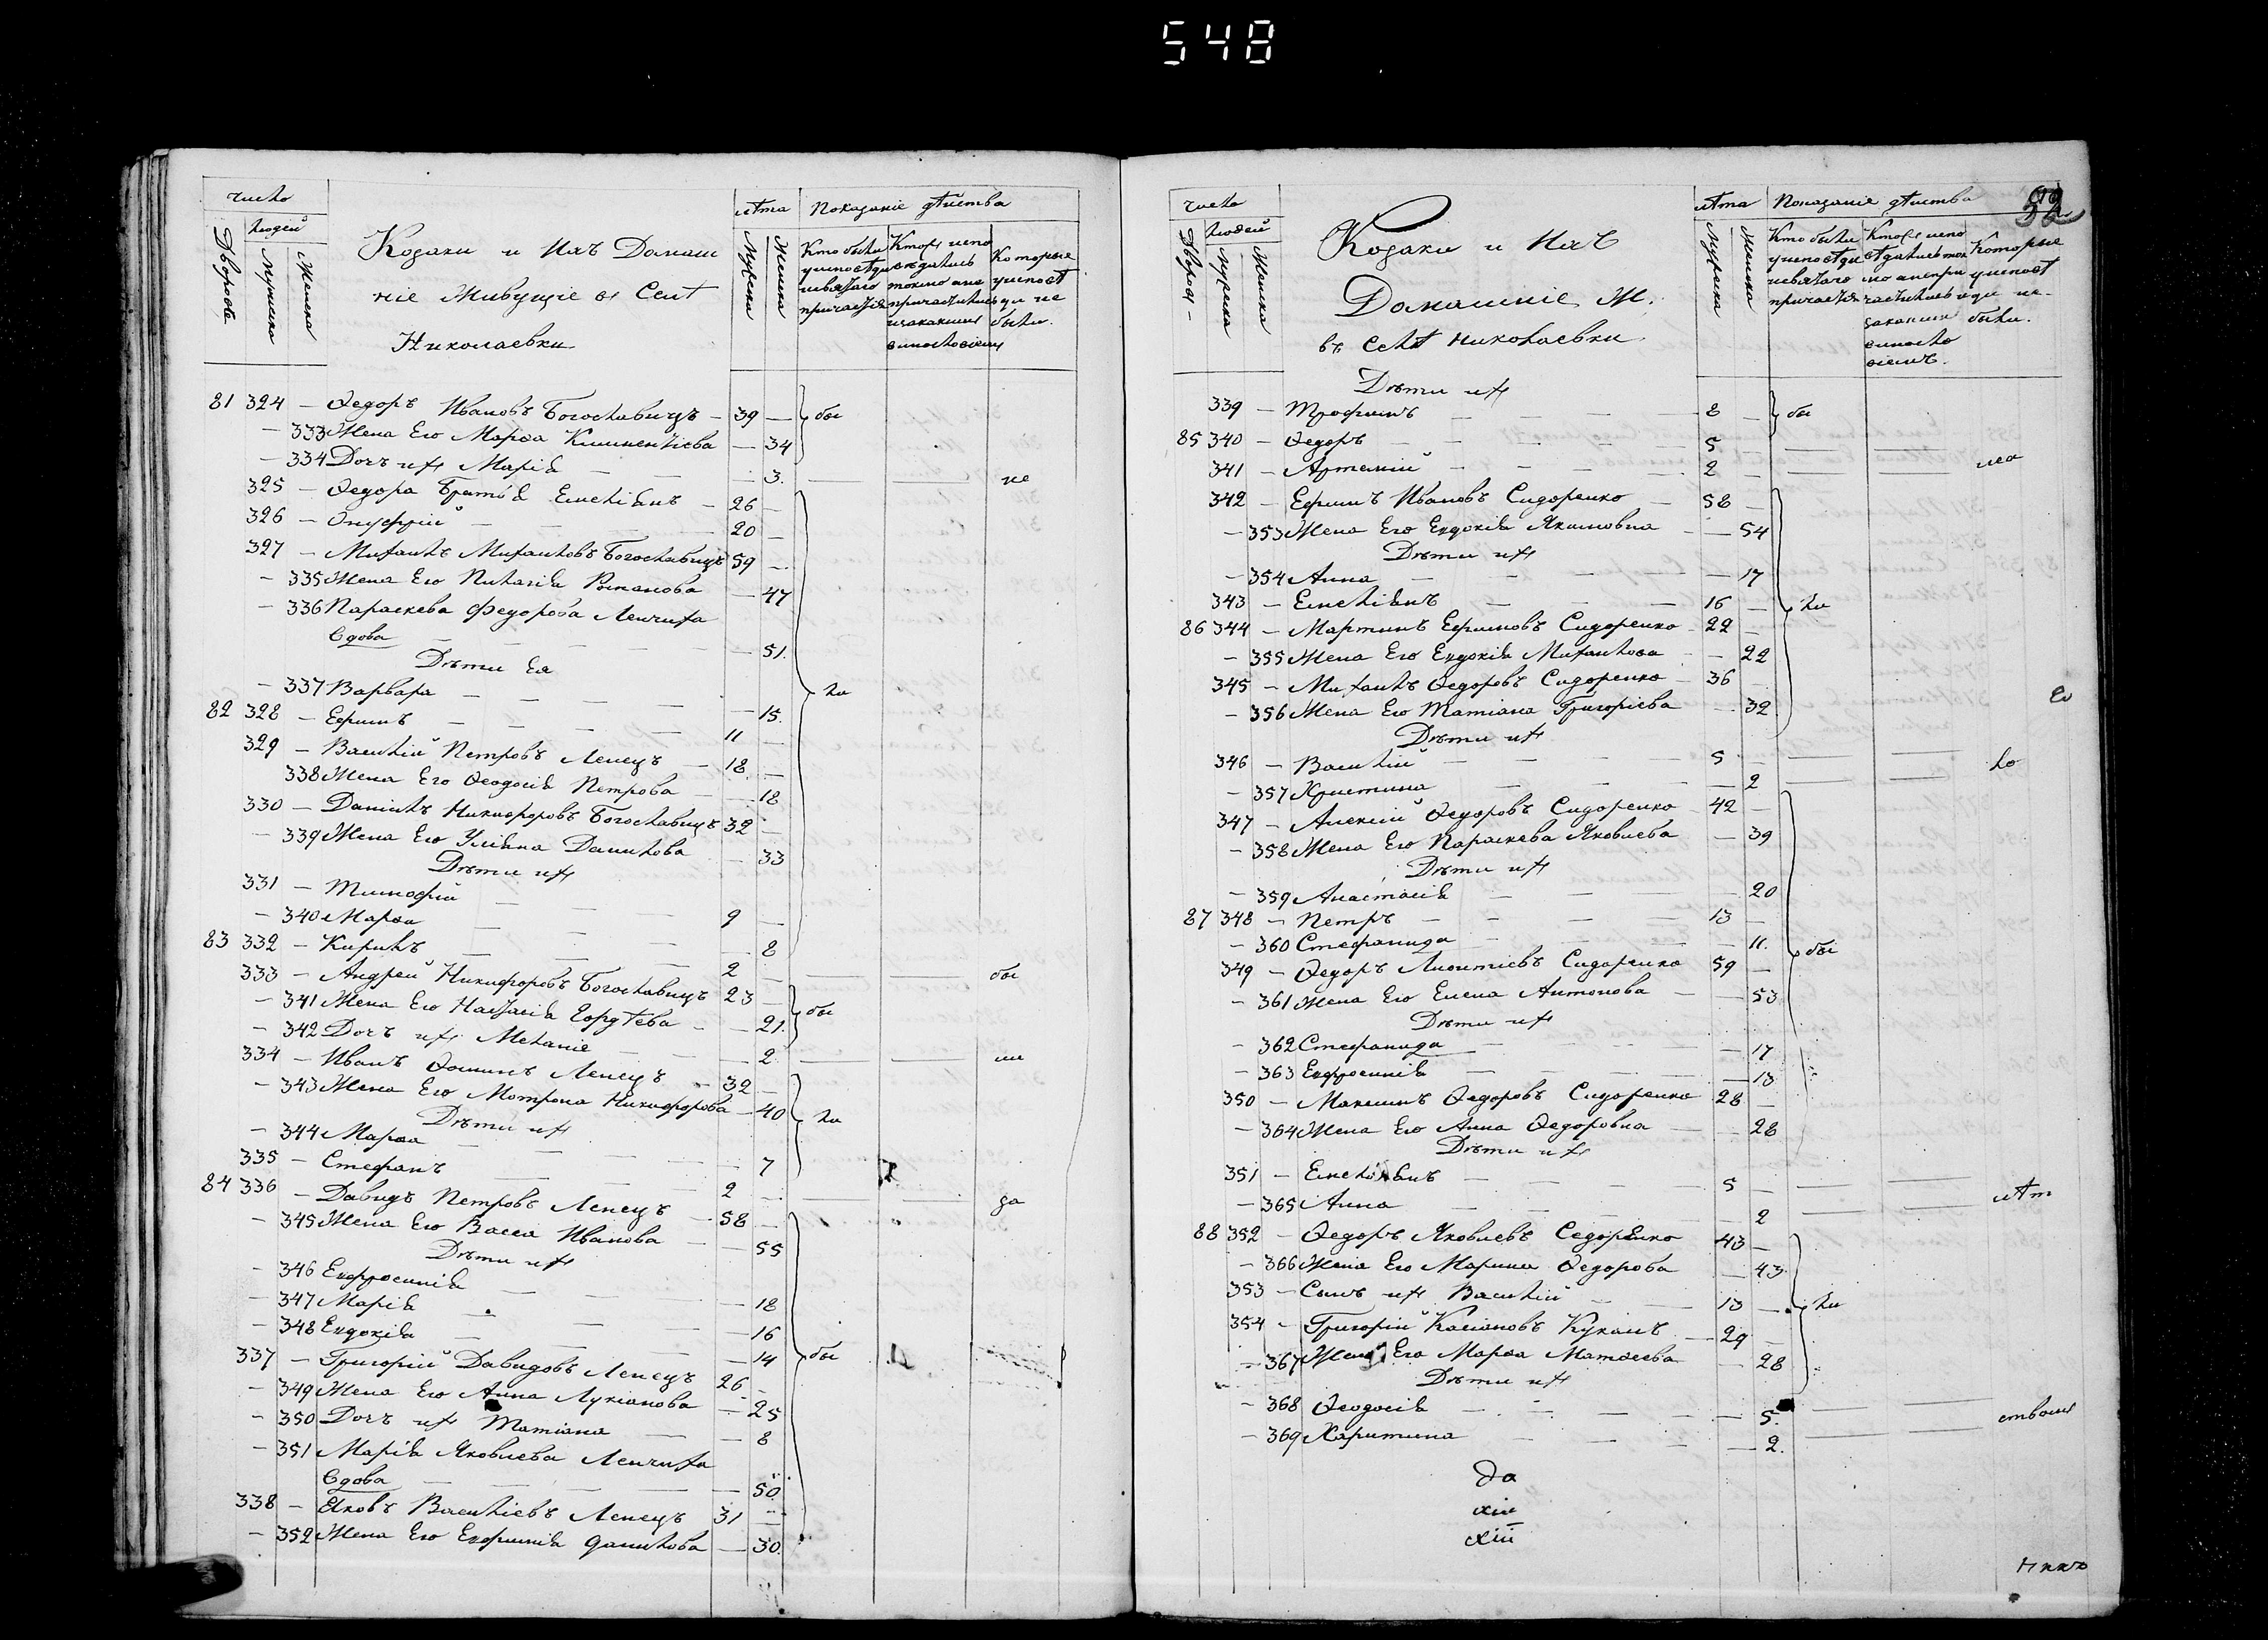 548
число
людей
Дворовъ
Мужеска
Женска
Козаки и Ихъ Домаш
ніе Живущіе въ Селѣ
Николаевки
лѣта
Мужеска
Женска
Показаніе дѣйства
Кто были у исповѣди и святаго причастія
Которые исповѣдались токмо а не причастились и за какимъ винословіемъ
Которые у исповѣди не были.
81 324 — Ѳедоръ Ивановъ Богославецъ — 39 — бы
— 333 Жена Его Марѳа Климентіева — 34
— 334 Дочь ихъ Марія — 3. не
325 — Ѳедора Братья Емеліянъ — 26 —
326 — Онуфрій — 20 —
327 — Михаилъ Михаиловъ Богославецъ 59 —
— 335 Жена Его Пелагія Романова — 47
— 336 Параскева Федорова Ленчиха
Вдова — 51.
Дѣти Ея
— 337 Варвара — 15. ли
82 328 — Ефимъ — 11 —
329 — Василій Петровъ Ленецъ — 18. —
338 Жена Его Ѳеодосія Петрова — 18
330 — Даніилъ Никифоровъ Богославецъ 32 —
— 339 Жена Его Уліяна Данилова — 33
Дѣти ихъ
331 — Тимофій — 9 —
— 340 Марѳа — 8
83 332 — Кирилъ — 2 — бы
333 — Андрей Никифоровъ Богославецъ 23 —
— 341 Жена Его Настасія Гордѣева — 21. бы
— 342 Дочь ихъ Меланіе — 2. ли
334 — Иванъ Ѳоминъ Ленецъ — 32 —
— 343 Жена Его Мотрона Никифорова — 40 ли
Дѣти ихъ
— 344 Марѳа — 7
335 — Стефанъ — 2 — за
84 336 — Давидъ Петровъ Ленецъ — 58 —
— 345 Жена Его Васса Иванова — 55
Дѣти ихъ
— 346 Евфросинія — 18
— 347 Марія — 16
— 348 Евдокія — 14 бы
337 — Григорій Давидовъ Ленецъ 26 —
— 349 Жена Его Анна Лукіанова — 25
— 350 Дочь ихъ Татіана — 8
— 351 Марія Яковлева Ленчиха
Вдова — 50.
338 — Яковъ Василіевъ Ленецъ 31 —
— 352 Жена Его Евфимія Данилова — 30.
число
людей
Дворов
Мужеска
Женска
Козаки и Ихъ
Домашніе Ж.
въ Селѣ Николаевки
лѣта
Мужеска
Женска
Показаніе дѣйства
Кто были у исповѣди и святаго причастія
Которые исповѣдались токмо а не причастились за какимъ винословіемъ.
Которые у исповѣди не были.
Дѣти ихъ
339 — Трофимъ — 8 — бы
85 340 — Ѳедоръ — 5
341 — Артемій — 2
342 — Ефимъ Ивановъ Сидоренко — 58 —
— 353 Жена Его Евдокія Якимовна — 54
Дѣти ихъ
— 354 Анна — 17
343 — Емеліянъ — 16 — ли
86 344 — Мартинъ Ефимовъ Сидоренко 22 —
— 355 Жена Его Евдокія Михаилова — 22
345 — Михаилъ Ѳедоровъ Сидоренко — 36
— 356 Жена Его Татіана Григоріева — 32
Дѣти ихъ
346 — Василій — 5 ло
— 357 Христина — 2
347 — Алексій Ѳедоровъ Сидоренко — 42 —
— 358 Жена Его Параскева Яковлева — 39
Дѣти ихъ
— 359 Анастасія — 20
87 348 — Петръ — 13 —
— 360 Стефанида — 11. бы
349 — Ѳедоръ Леонтіевъ Сидоренко 59 —
— 361 Жена Его Елена Антонова — 53
Дѣти ихъ
— 362 Стефанида — 17
— 363 Евфросинія — 13
350 — Максимъ Ѳедоровъ Сидоренко 28 —
— 364 Жена Его Анна Ѳедоровна — 28
Дѣти ихъ
351 — Емеліянъ — 5 — лѣт
— 365 Анна — 2
88 352 — Ѳедоръ Яковлевъ Седоренко 43 —
— 366 Жена Его Марина Ѳедорова — 43
353 — Сынъ ихъ Василій — 13 — ли
354 — Григорій Касіановъ Куканъ — 29 —
— 367 Жена Его Марѳа Матѳеева — 28
Дѣти ихъ
— 368 Ѳеодосія — 5. ствомъ
— 369 Харитина — 2.